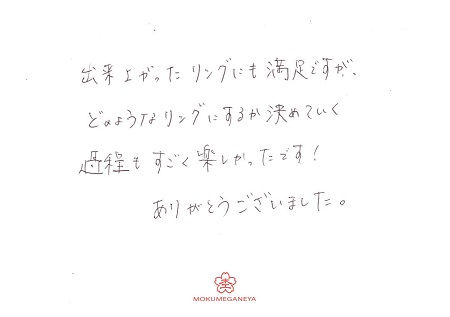 出来上がったリングにも満足ですが、
どのようなリングにするか決めていく
過程もすごく楽しかったです！
ありがとうございました。
MOKUMEGANEYA